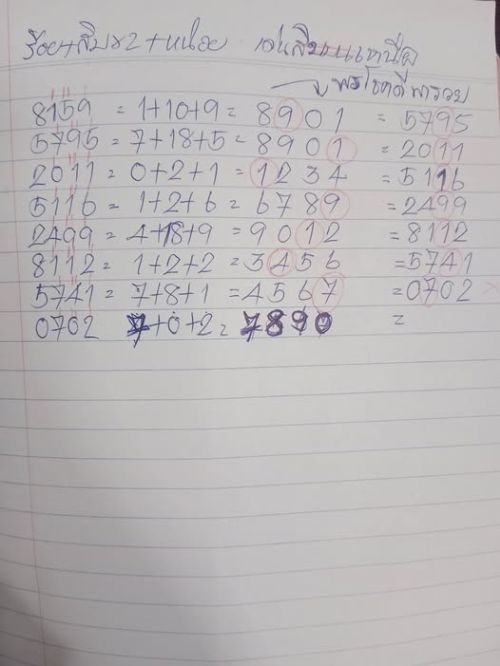 ร้อย+สิบx2+หน่วย เด่นสิบบนเหนือ
พรโชคดีพารวย
8159 = 1+10+9= 8901 = 5795
5795 = 7+18+5= 8901 = 2011
2011 = 0+2+1 = 1234 = 5116
5116 = 1+2+6 = 6789 = 2499
2499 = 4+18+9 = 9012 = 8112
8112 = 1+2+2 = 3456 = 5741
5741 = 7+8+1 = 4567 = 0702
0702 7+0+2= 7890 =